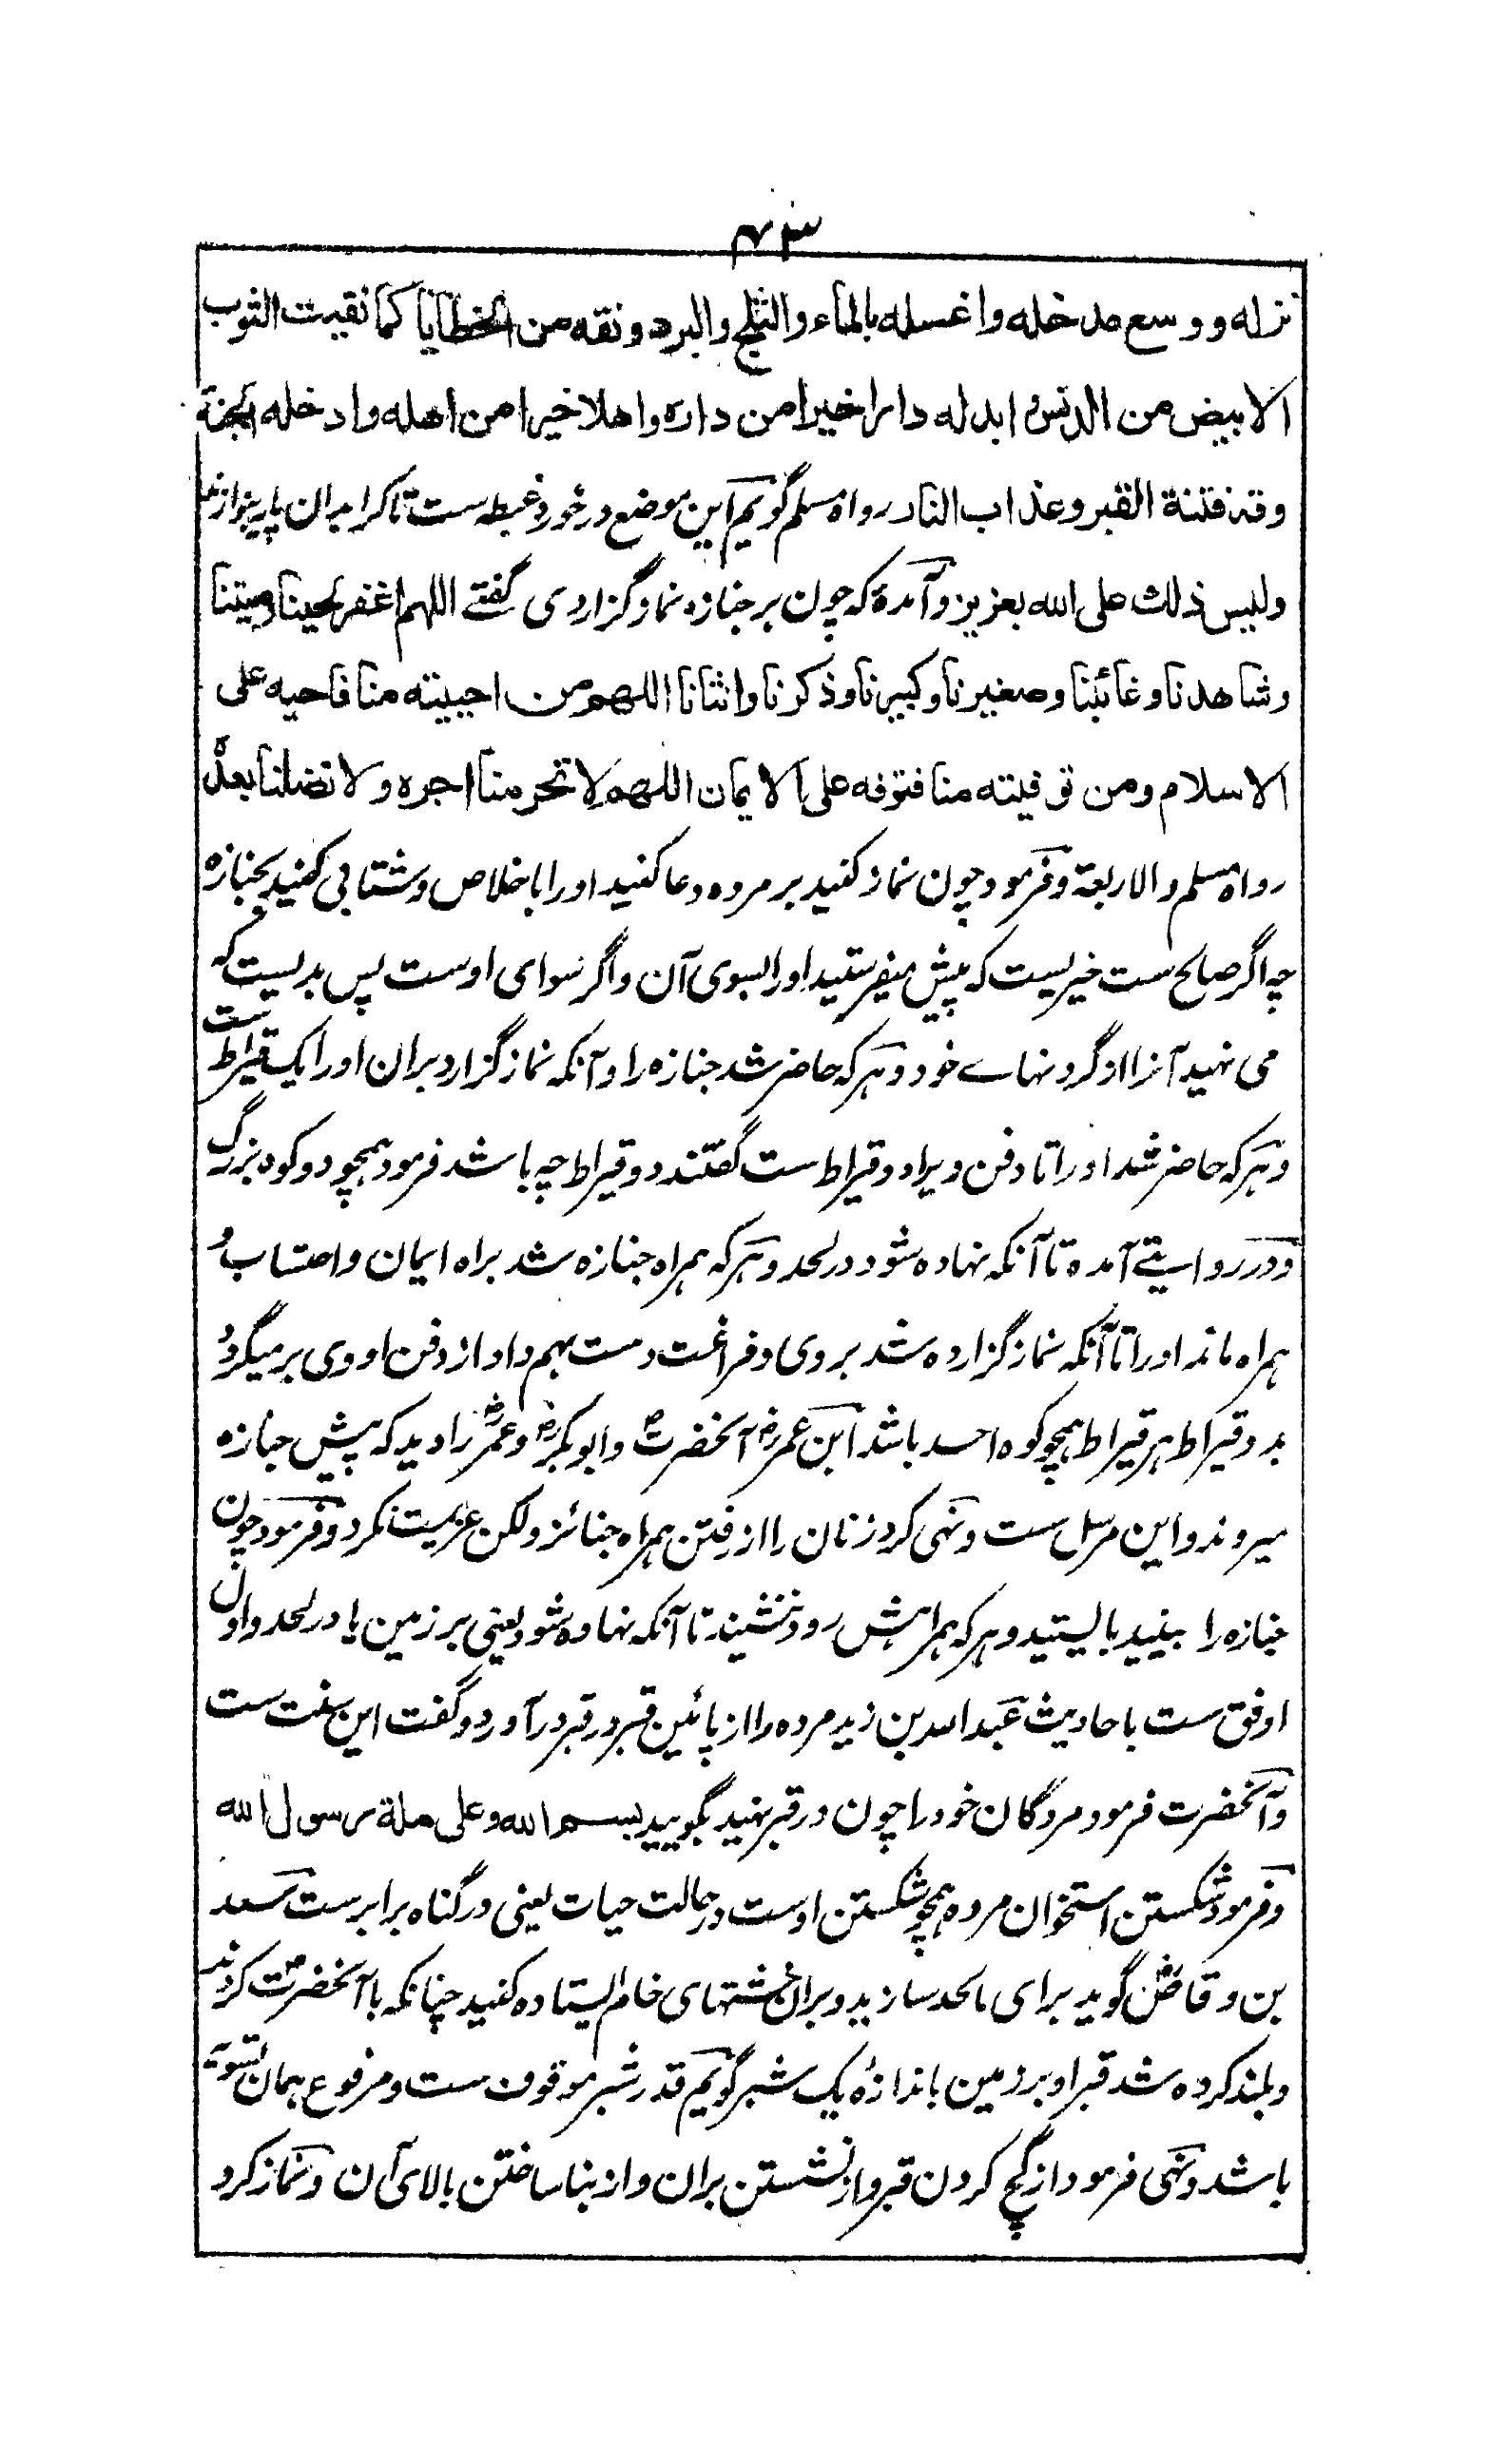 ۴۳
نزله ووسع مدخله واغسله بالماء والثلج والبرد ونقه من الخطايا كما نقيت الثوب
الابيض من الدنس وابدله دارا خيرا من داره واهلا خيرا من اهله وادخله الجنة
وقه فتنة القبر وعذاب النار رواه مسلم گویم این موضع در خورد غبطه ست تا کرا بدان بنوازند
وليس ذلك على الله بعزيز وآمده که چون بر جنازه نماز گزاردی گفتے اللهم اغفر لحينا وميتنا
وشاهدنا وغائبنا وصغيرنا وكبيرنا وذكرنا وانثانا اللهم من احييته منا فاحيه على
الاسلام ومن توفيته منا فتوفه على الايمان اللهم لا تحرمنا اجره ولا تضلنا بعده
رواه مسلم والاربعة وفرمود چون نماز کنید بر مرده دعا کنید او را باخلاص وشتابی کنید بجنازه
چه اگر صالح ست خیریست که پیش میفرستید او را بسوی آن واگر سوای اوست پس بدیست که
می نهید آنرا از گردنهاے خود وهرکه حاضر شد جنازه را وآنکه نماز گزارد بران او را یک قیراط ست
وهرکه حاضر شد او را تا دفن ویرا دو قیراط ست گفتند دو قیراط چه باشد فرمود همچو دو کوه بزرگ
ودر روایتے آمده تا آنکه نهاده شود در لحد وهرکه همراه جنازه شد براه ایمان واحتساب و
همراه ماند او را تا آنکه نماز گزارده شد بر وی وفراغت دست بهم داد از دفن او وی برمیگردد
بدو قیراط هر قیراط همچو کوه احد باشد ابن عمر رض آنحضرت ص وابوبکر رض وعمر رض را دید که پیش جنازه
میروند واین مرسل ست ونهی کرد زنان را از رفتن همراه جنائز ولکن عزیمت نکرد وفرمود چون
جنازه را ببینید بایستید وهرکه همراهش رود ننشیند تا آنکه نهاده شود یعنی بر زمین یا در لحد واول
اوفق ست باحادیث عبدالله بن زید مرده را از پائین قبر در قبر درآورد وگفت این سنت ست
وآنحضرت فرمود مردگان خود را چون در قبر نهید بگویید بسم الله وعلى ملة رسول الله
وفرمود شکستن استخوان مرده همچو شکستن اوست در حالت حیات یعنی در گناه برابر ست سعد
بن وقاص رض گوید برای ما لحد سازید وبران خشتهای خام ایستاده کنید چنانکه با آنحضرت ص کردند
وبلند کرده شد قبر او بر زمین باندازهٔ یک شبر گویم قدر شبر موقوف ست ومرفوع همان تسویه
باشد ونهی فرمود از گچ کردن قبر واز نشستن بران واز بنا ساختن بالای آن ونماز کرد